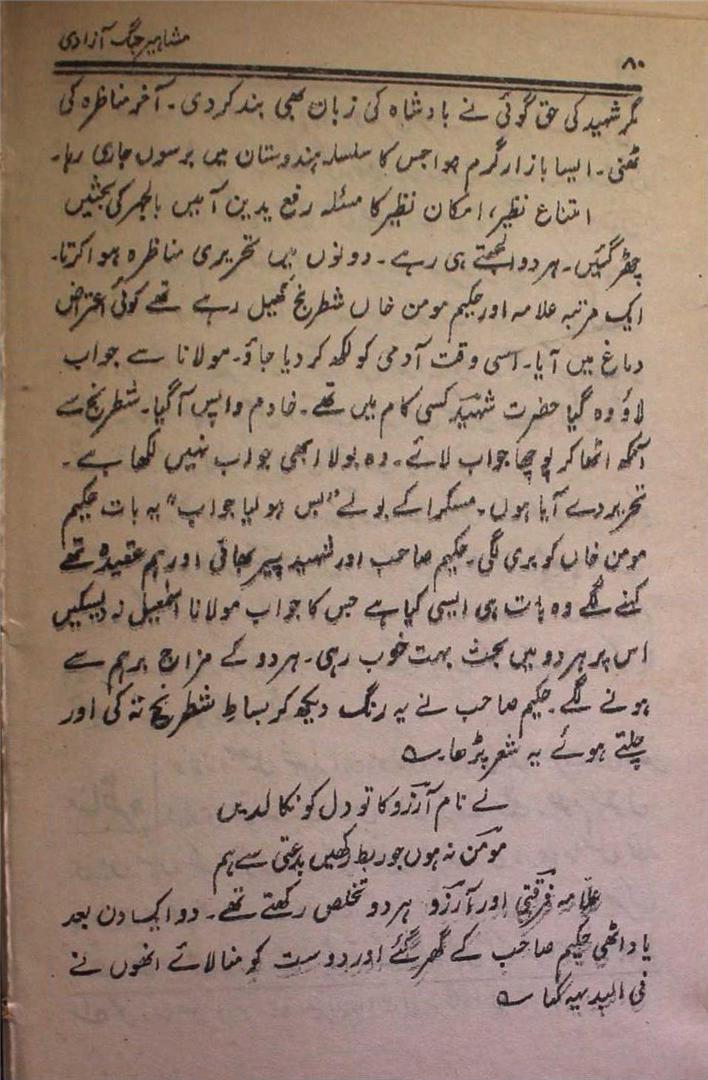 مشاہیر جنگ آزادی
۸۰
مگر شہید کی حق گوئی نے بادشاہ کی زبان بھی بند کردی۔ آخر مناظرہ کی
ٹھنی۔ ایسا بازار گرم ہوا جس کا سلسلہ ہندوستان میں برسوں جاری رہا۔
امتناع نظیر، امکان نظیر کا مسئلہ رفع یدین آمین بالجہر کی بحثیں
چھڑ گئیں۔ ہر دو الجھتے ہی رہے۔ دونوں میں تحریری مناظرہ ہوا کرتا۔
ایک مرتبہ علامہ اور حکیم مومن خاں شطرنج کھیل رہے تھے کوئی اعتراض
دماغ میں آیا۔ اسی وقت آدمی کو لکھ کر دیا جاؤ۔ مولانا سے جواب
لاؤ وہ گیا حضرت شہید کسی کام میں تھے۔ خادم واپس آگیا۔ شطرنج سے
آنکھ اٹھا کر پوچھا جواب لائے۔ وہ بولا ابھی جواب نہیں لکھا ہے۔
تحریر دے آیا ہوں۔ مسکرا کے بولے ”بس ہو لیا جواب“ یہ بات حکیم
مومن خاں کو بری لگی۔ حکیم صاحب اور شہید پیر بھائی اور ہم عقیدہ تھے
کہنے لگے وہ بات ہی ایسی کیا ہے جس کا جواب مولانا اسمٰعیل نہ دیسکیں
اس پر ہر دو میں بحث بہت خوب رہی۔ ہر دو کے مزاج برہم سے
ہونے لگے۔ حکیم صاحب نے یہ رنگ دیکھ کر بساطِ شطرنج تہ کی اور
چلتے ہوئے یہ شعر پڑھا ؎
لے نام آرزو کا تو دل کو نکالدیں
مومنؔ نہ ہوں جو ربط رکھیں بدعتی سے ہم
علّامہ فرقتیؔ اور آرزوؔ ہر دو تخلص رکھتے تھے۔ دو ایک دن بعد
یاد اٹھی حکیم صاحب کے گھر گئے اور دوست کو منا لائے انھوں نے
فی البدیہہ کہا ؎